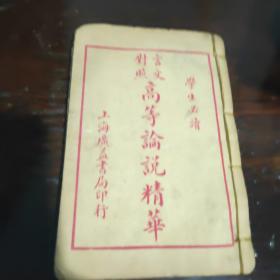 學生必讀
言文
對照
高等論説精華
上海廣益書局印行